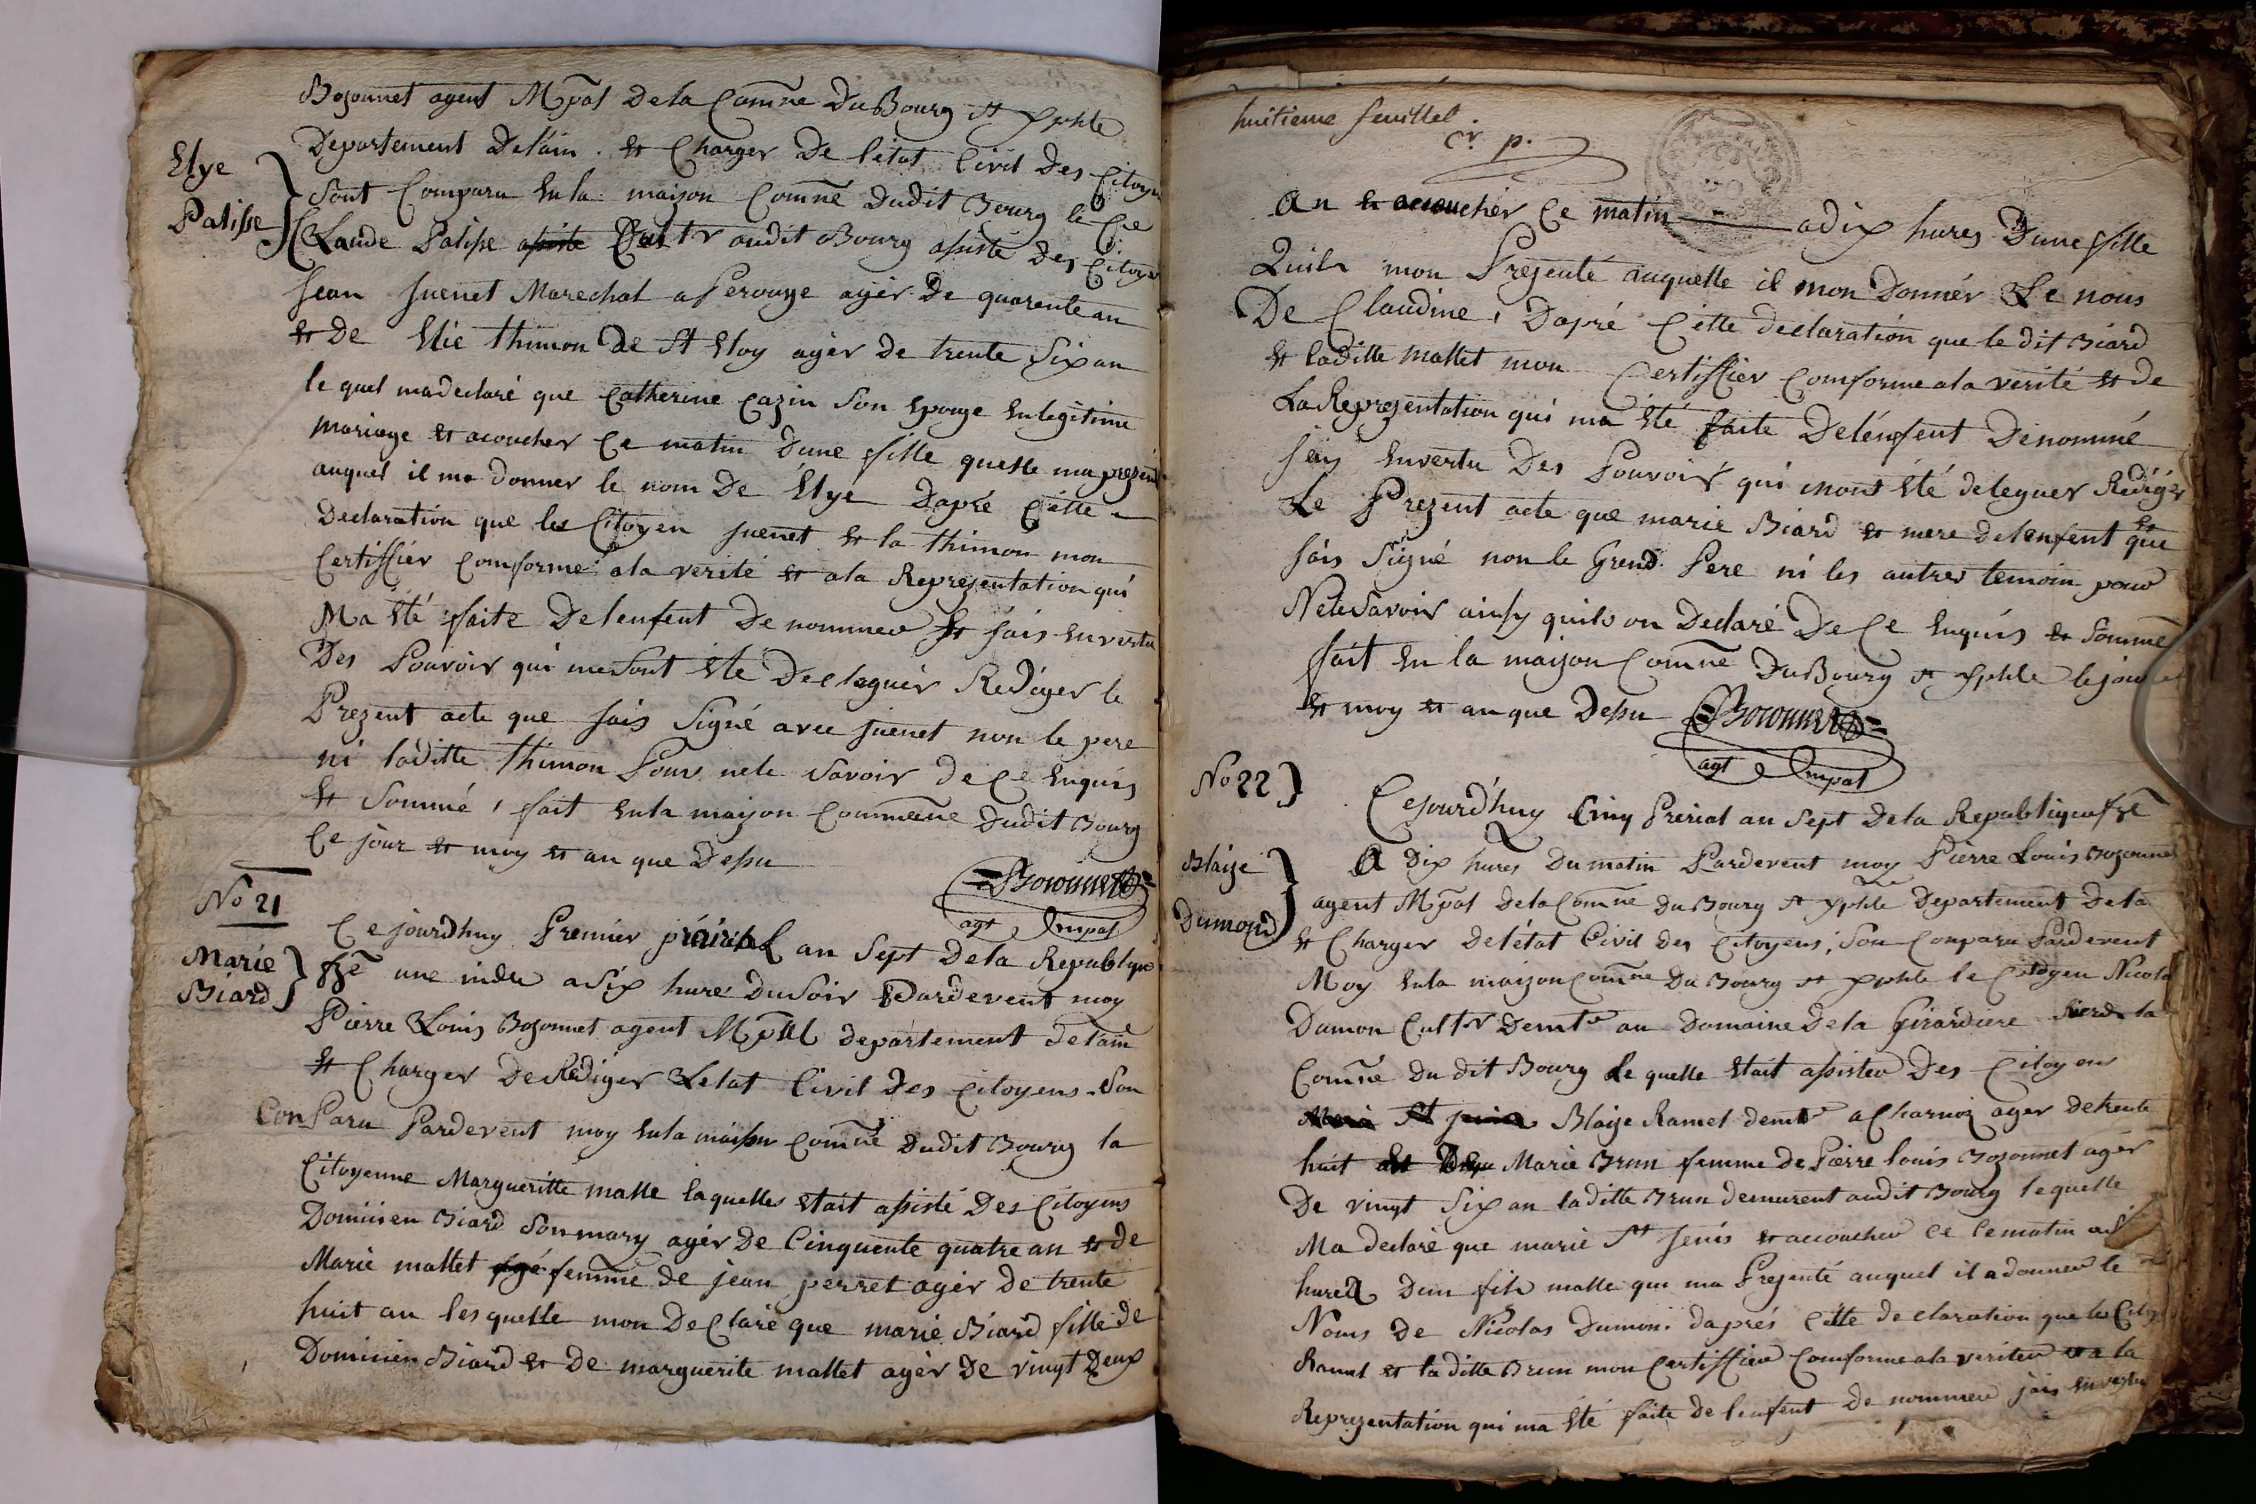 Bozonnet agent Mpãl De la Comne Du Bourg St Xphle
Departement Delain. Et Charger De letat Civil Des Citoyen
Elye
Palisse
Sont Comparu En la maison Comne Dudit Bourg le Cie
Claude Palisse Cultr audit Bourg assisté Des Citoyen
Jean Juenet Marechal a Perouge agér De quarente an
Et De Elie thimon De St Eloy agér de trente Six an
le quel ma declaré que Catherine Cazin Son Epouze En legitime
Mariage Et acoucher Ce matin Dune fille quelle ma prezent
auquel il ma donner le nom De Elye Dapré Cette
Declaration que les Citoyen Juenet Et la thimon mon
Certiffier Comforme a la verité Et a la Reprezentation qui
Ma Eté faite De lenfent De nommer Et jais En vertu
Des Pouvoir qui me Sont Eté Deleguér Rediger le
Prezent acte que jais Signé avec Juenet non le pere
ni laditte thimon Pour nele Savoir de Ce Enquis
Et Sommé, fait En la maison Commune Dudit Bourg
Ce jour Et moy Et an que Dessu
Bozonnet
agt mpal
No 21
Marie
Biard
Ce jourdhuy Premier prairial an Sept De la Republique
fze une indiv a Six hure Du Soir Pardevent moy
Pierre Louis Bozonnet agent Mpãl departement Delain
Et Charger De Rediger Letat Civil Des Citoyens Son
Con Paru Pardevent moy En la maison Comne Dudit Bourg la
Citoyenne Margueritte malle laquelles Etait assisté Des Citoyens
Dominien Biard Son mary agér De Cinquente quatre an Et de
Marie mallet femme de jean perret agér de trente
huit an lesquelle mon Declaré que marie Biard fille de
Dominien Biard Et De marguerite mallet agér De vingt Deux
huitieme feuillet.
p.
an Et acoucher Ce matin a dix hures Dune fille
Quils mon Prezenté auquelle il mon Donnér Le nous
De Claudine, Dapré Cette declaration que le dit Biard
Et laditte mallet mon Certiffier Comforme a la verité Et de
La Reprezentation qui ma Eté faite De lenfent Denommé
jay En vertu Des Pouvoir qui mons Eté deleguer Redigér
Le Prezent acte que marie Biard Et mere de lenfent Et que
jais Signé non le Grend Pere ni les autres temoin pour
Nele Savoir ainsy quils on Declaré De Ce Enquis Et Sommé
fait En la maison Comne Du Bourg St Xphle le jour
Et moy Et an que Dessu Bozonnet
agt mpal
No 22
Blaize
Dumond
Cejourdhuy Cinq Prerial an Sept De la Republique fze
A Dix hures Du matin Pardevent moy Pierre Louis Bozonnet
agent Mpãl De la Comne Du Bourg St Xphle Departement De la
Et Charger De létat Civil Des Citoyens, Son Comparu Pardevent
Moy En la maizon Comne Du Bourg St Xphle le Citoyen Nicola
Dumon Cultr Demt au Domaine De la Girardiere la
Comne Du dit Bourg Le quelle Etait assister Des Citoyens
Blaize Ramel demt a Charnoz ager de trente
huit Marie Brun femme de Pierre louis Bozonnet agér
De vingt Six an laditte Brun demurent audit Bourg lequelle
Ma declaré que marie St Jenis Et accoucher Ce Cematin
hures Dun fils malle qui ma Prezenté auquel il a donner le
Noms de Nicolas Dumon. daprés Cette declaration que les Citoy
Ramel Et laditte Brun mon Certiffier Comforme a la veriter Et a la
Reprezentation qui ma Eté faite de lenfent De nommer jais En vertu